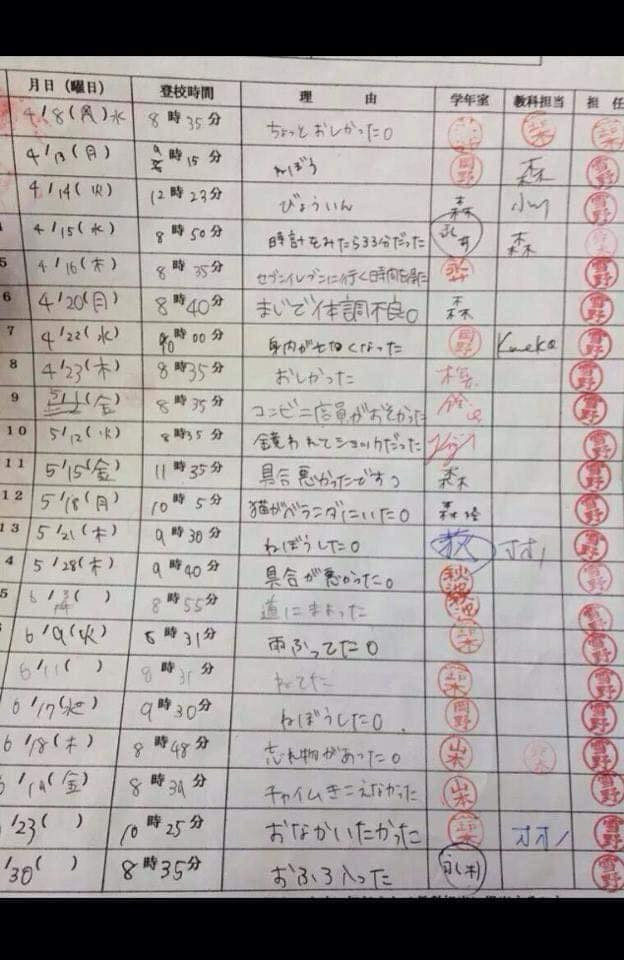 月日（曜日） 登校時間 理 由 学年室 教科担当 担 任
4/8(月)水 8時35分 ちょっとおしかった。
4/13(月) 9時15分 ねぼう 岡野 森 雪野
4/14(火) 12時23分 びょういん 森 小川 雪野
4/15(水) 8時50分 時計をみたら33分だった 永井 森
5 4/16(木) 8時35分 セブンイレブンに行く時間 雪野
6 4/20(月) 8時40分 まじで体調不良。 森 雪野
7 4/22(水) 10時00分 身内が亡くなった 岡野 Kaneko 雪野
8 4/23(木) 8時35分 おしかった 雪野
9 (金) 8時35分 コンビニ店員がおそかった 雪野
10 5/12(火) 8時35分 鏡われてショックだった 雪野
11 5/15(金) 11時35分 具合悪かったです 森 雪野
12 5/18(月) 10時5分 猫がベランダにいた。 森 雪野
13 5/21(木) 9時30分 ねぼうした。 雪野
4 5/28(木) 9時40分 具合が悪かった。 雪野
5 6/ ( ) 8時55分 道にまよった 雪野
6/9(火) 8時31分 雨ふってた。 雪野
6/11( ) 8時31分 ねてた 雪野
6/17(水) 9時30分 ねぼうした。 岡野 雪野
6/18(木) 8時48分 忘れ物があった。 山本 雪野
6/19(金) 8時39分 チャイムきこえなかった 山本 雪野
/23( ) 10時25分 おなかいたかった オオノ 雪野
/30( ) 8時35分 おふろ入った 雪野